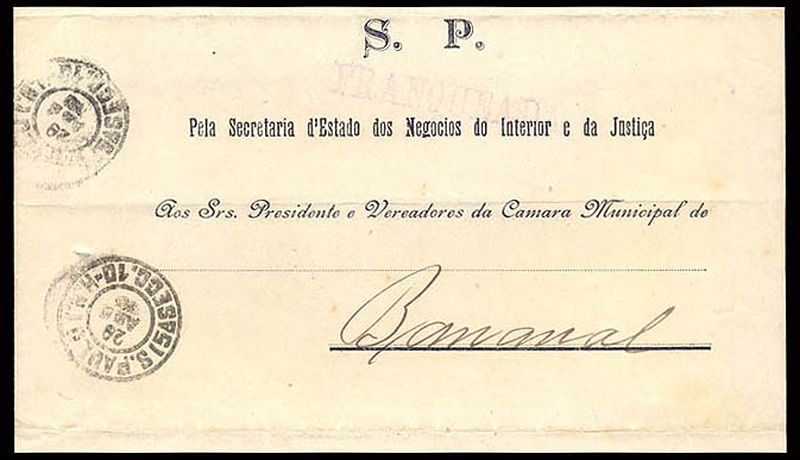 S. P.
FRANQUEADA
Pela Secretaria d'Estado dos Negocios do Interior e da Justiça
Aos Srs. Presidente e Vereadores da Camara Municipal de
Bananal
S. PAULO
5ª SECC. 10-H
28
5ª SECC.
28